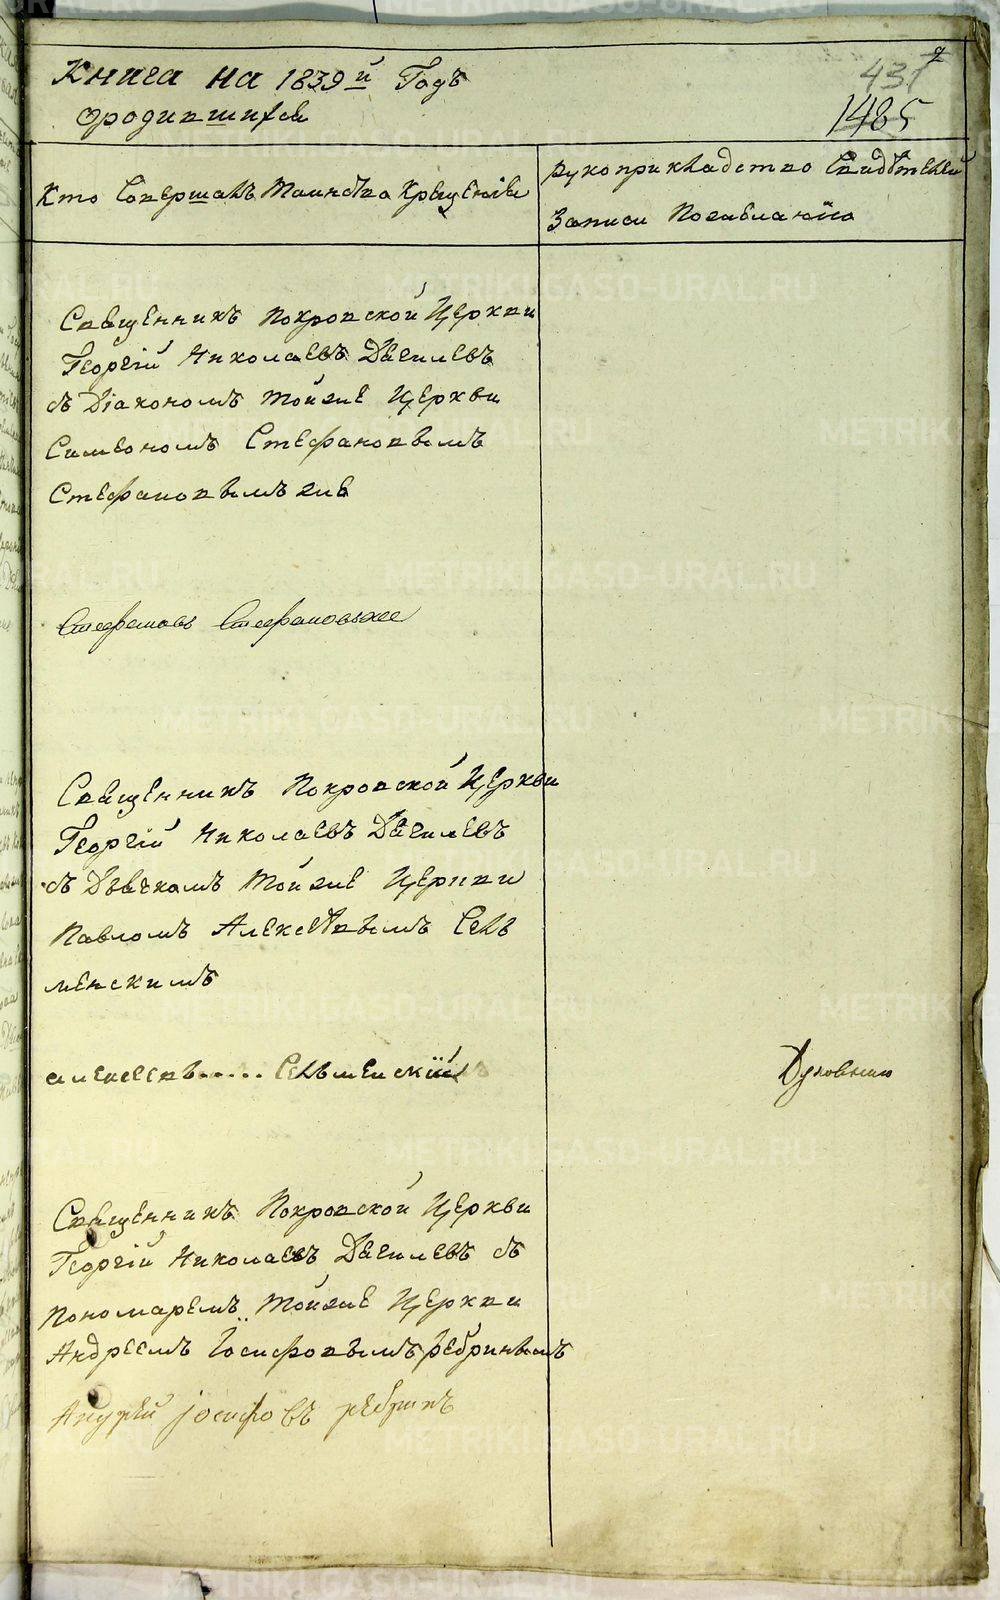 Книга на 1839й Годъ
ородившихся
437
1485
Кто Совершалъ Таинство Крещенія
Рукоприкладство Свидѣтелей
Записи Пожеланію
Священникъ Покровской Церкви
Георгій Николаевъ
съ Діакономъ тойже Церкви
Симеономъ Стефановымъ
Стефановымъ же
Стефановъ Стефановъ же
Священникъ Покровской Церкви
Георгій Николаевъ
съ Дьячкомъ тойже Церкви
Павломъ Алексѣевымъ Сель
менскимъ
алексеевъ..... Сельменскій
Священникъ Покровской Церкви
Георгій Николаевъ съ
Пономаремъ тойже Церкви
Андреемъ Іосифовымъ Ребринымъ
Андрей іосифовъ ребринъ
METRIKI.GASO-URAL.RU